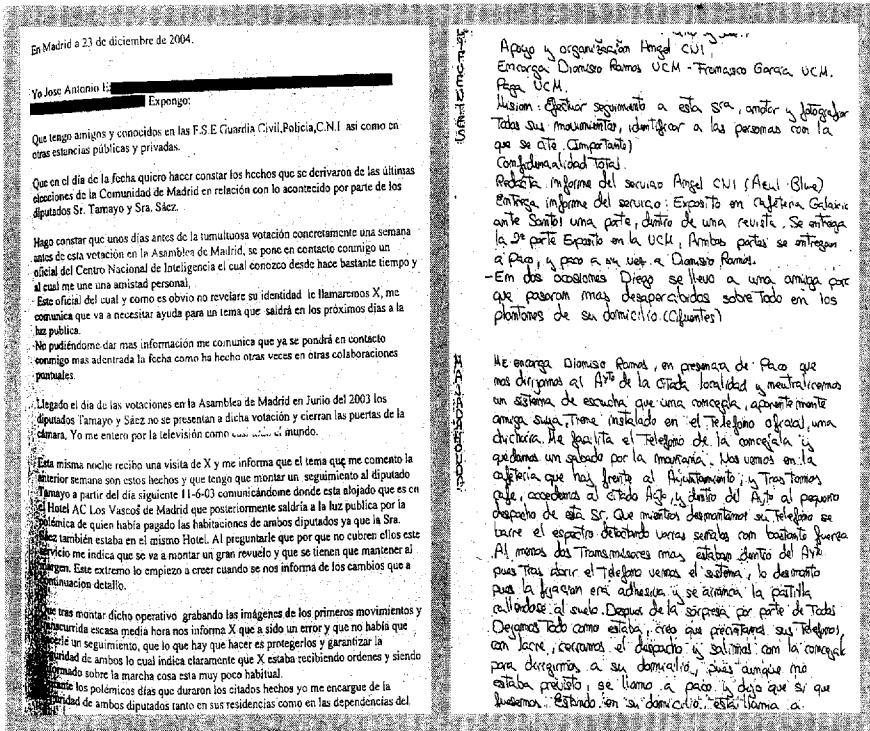 En Madrid a 23 de diciembre de 2004.
Yo Jose Antonio E
Expongo:
Que tengo amigos y conocidos en las F.S.E Guardia Civil,Policia,C.N.I asi como en
otras estancias públicas y privadas.
Que en el día de la fecha quiero hacer constar los hechos que se derivaron de las últimas
elecciones de la Comunidad de Madrid en relación con lo acontecido por parte de los
diputados Sr. Tamayo y Sra. Sáez.
Hago constar que unos días antes de la tumultuosa votación concretamente una semana
antes de esta votación en la Asamblea de Madrid, se pone en contacto conmigo un
oficial del Centro Nacional de Inteligencia el cual conozco desde hace bastante tiempo y
al cual me une una amistad personal,
- Este oficial del cual y como es obvio no revelare su identidad le llamaremos X, me
comunica que va a necesitar ayuda para un tema que saldrá en los próximos días a la
luz publica.
-No pudiéndome dar mas información me comunica que ya se pondrá en contacto
conmigo mas adentrada la fecha como ha hecho otras veces en otras colaboraciones
puntuales.
Llegado el día de las votaciones en la Asamblea de Madrid en Junio del 2003 los
diputados Tamayo y Sáez no se presentan a dicha votación y cierran las puertas de la
cámara, Yo me entero por la televisión como el mundo.
Esta misma noche recibo una visita de X y me informa que el tema que me comento la
anterior semana son estos hechos y que tengo que montar un seguimiento al diputado
Tamayo a partir del día siguiente 11-6-03 comunicándome donde esta alojado que es en
el Hotel AC Los Vascos de Madrid que posteriormente saldría a la luz publica por la
polémica de quien había pagado las habitaciones de ambos diputados ya que la Sra.
Sáez también estaba en el mismo Hotel. Al preguntarle que por que no cubren ellos este
servicio me indica que se va a montar un gran revuelo y que se tienen que mantener al
margen. Este extremo lo empiezo a creer cuando se nos informa de los cambios que a
continuación detallo.
Que tras montar dicho operativo grabando las imágenes de los primeros movimientos y
transcurrida escasa media hora nos informa X que a sido un error y que no había que
hacerle un seguimiento, que lo que hay que hacer es protegerlos y garantizar la
seguridad de ambos lo cual indica claramente que X estaba recibiendo ordenes y siendo
informado sobre la marcha cosa esta muy poco habitual.
Durante los polémicos días que duraron los citados hechos yo me encargue de la
seguridad de ambos diputados tanto en sus residencias como en las dependencias del
CIFUENTES
Apoyo y organización Angel CNI.
Encarga Dionisio Ramos UCM - Francisco Garcia UCM.
Paga UCM.
Mision: Efectuar seguimiento a esta sra, anotar y fotografiar
Todos sus movimientos, identificar a las personas con la
que se cite (Importante)
Confidencialidad Total.
Redacta informe del servicio Angel CNI (Azul-Blue)
Entrega informe del servicio: Exposito en cafeteria Galaxie
ante Santos una parte, dentro de una revista. Se entrega
la 2ª parte Exposito en la UCM, Ambas partes se entregan
a Paco, y paco a su vez a Dionisio Ramos.
-En dos ocasiones Diego se llevo a una amiga para
que pasaran mas desapercibidos sobre todo en los
plantones de su domicilio (Cifuentes)
MAJADAHONDA
Me encarga Dionisio Ramos, en presencia de Paco que
nos dirijamos al Ayto de la citada localidad y neutralicemos
un sistema de escucha que una concejala, aparentemente
amiga suya, Tiene instalado en el Telefono oficial, una
chicharra. Me facilita el Telefono de la concejala y
quedamos un sabado por la mañana. Nos vemos en la
cafeteria que hay frente al Ayuntamiento, y Tras tomar
cafe, accedemos al citado Ayto, y dentro del Ayto al pequeño
despacho de esta Sr. Que mientras desmontamos su Telefono se
barre el espectro detectando varias señales con bastante fuerza
Al menos dos Transmisores mas estaban dentro del Ayto
pues Tras abrir el Telefono vemos el sistema, lo desmonto
pues la fijacion era adhesiva y se arranca la pastilla
callendose al suelo. Despues de la sorpresa por parte de Todos
Dejamos Todo como estaba, creo que precintamos sus Telefonos
con lacre, cerramos el despacho y salimos con la concejala
para dirigirnos a su domicilio, pues aunque no
estaba previsto, se llamo a paco y dijo que si que
fuesemos. Estando en su domicilio esta llama a